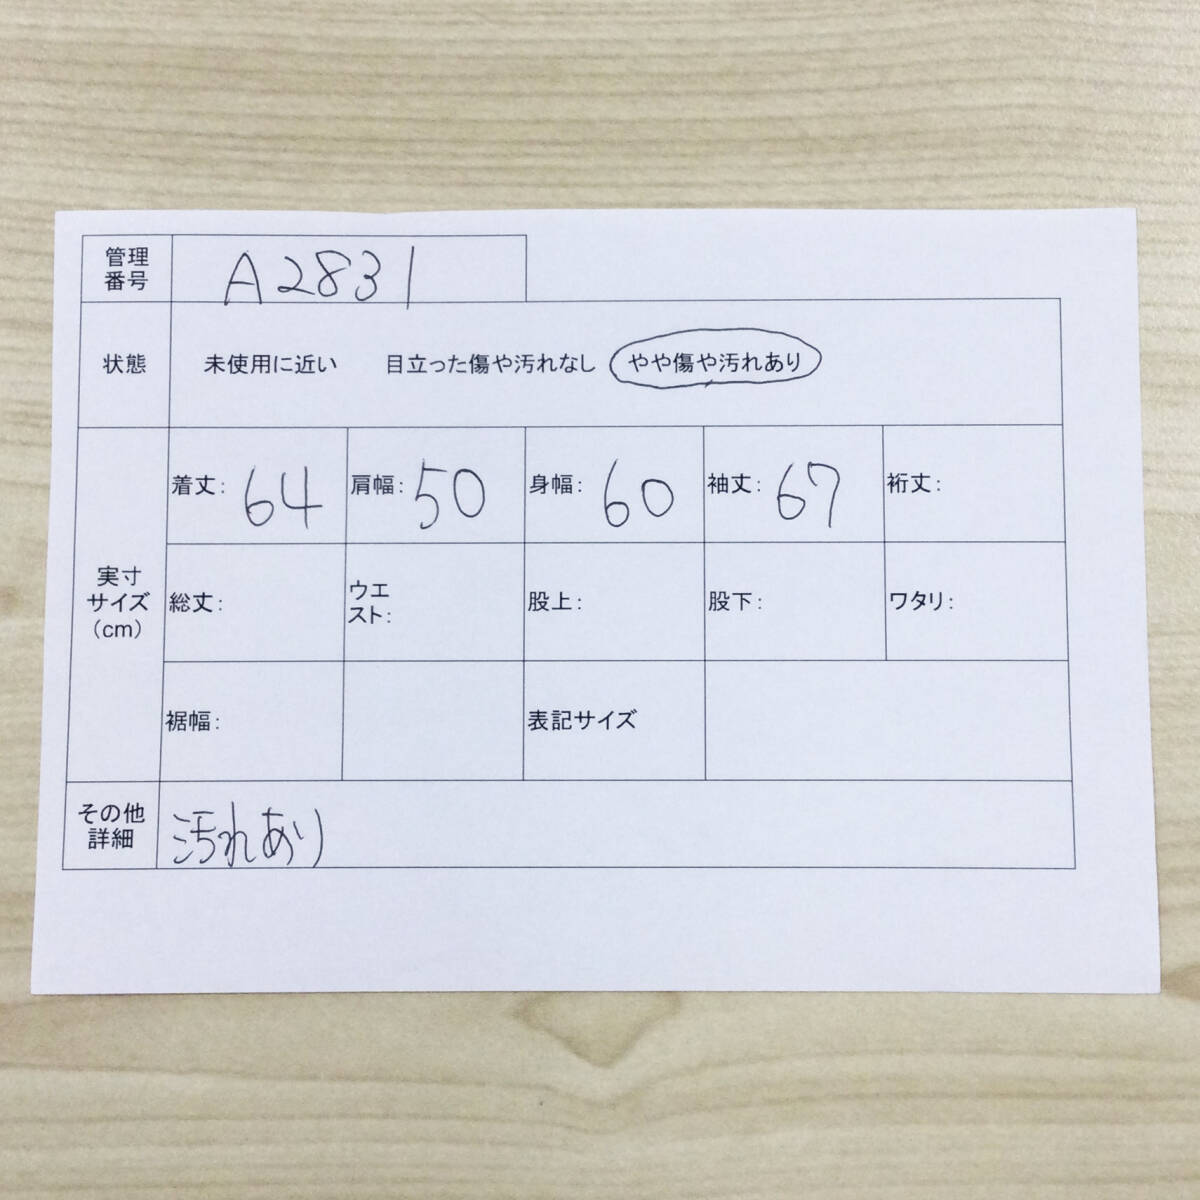 管理
番号
A2831
状態
未使用に近い 目立った傷や汚れなし やや傷や汚れあり
実寸
サイズ
(cm)
着丈: 64 肩幅: 50 身幅: 60 袖丈: 67 裄丈:
総丈: ウエ
スト: 股上: 股下: ワタリ:
裾幅: 表記サイズ
その他
詳細
汚れあり